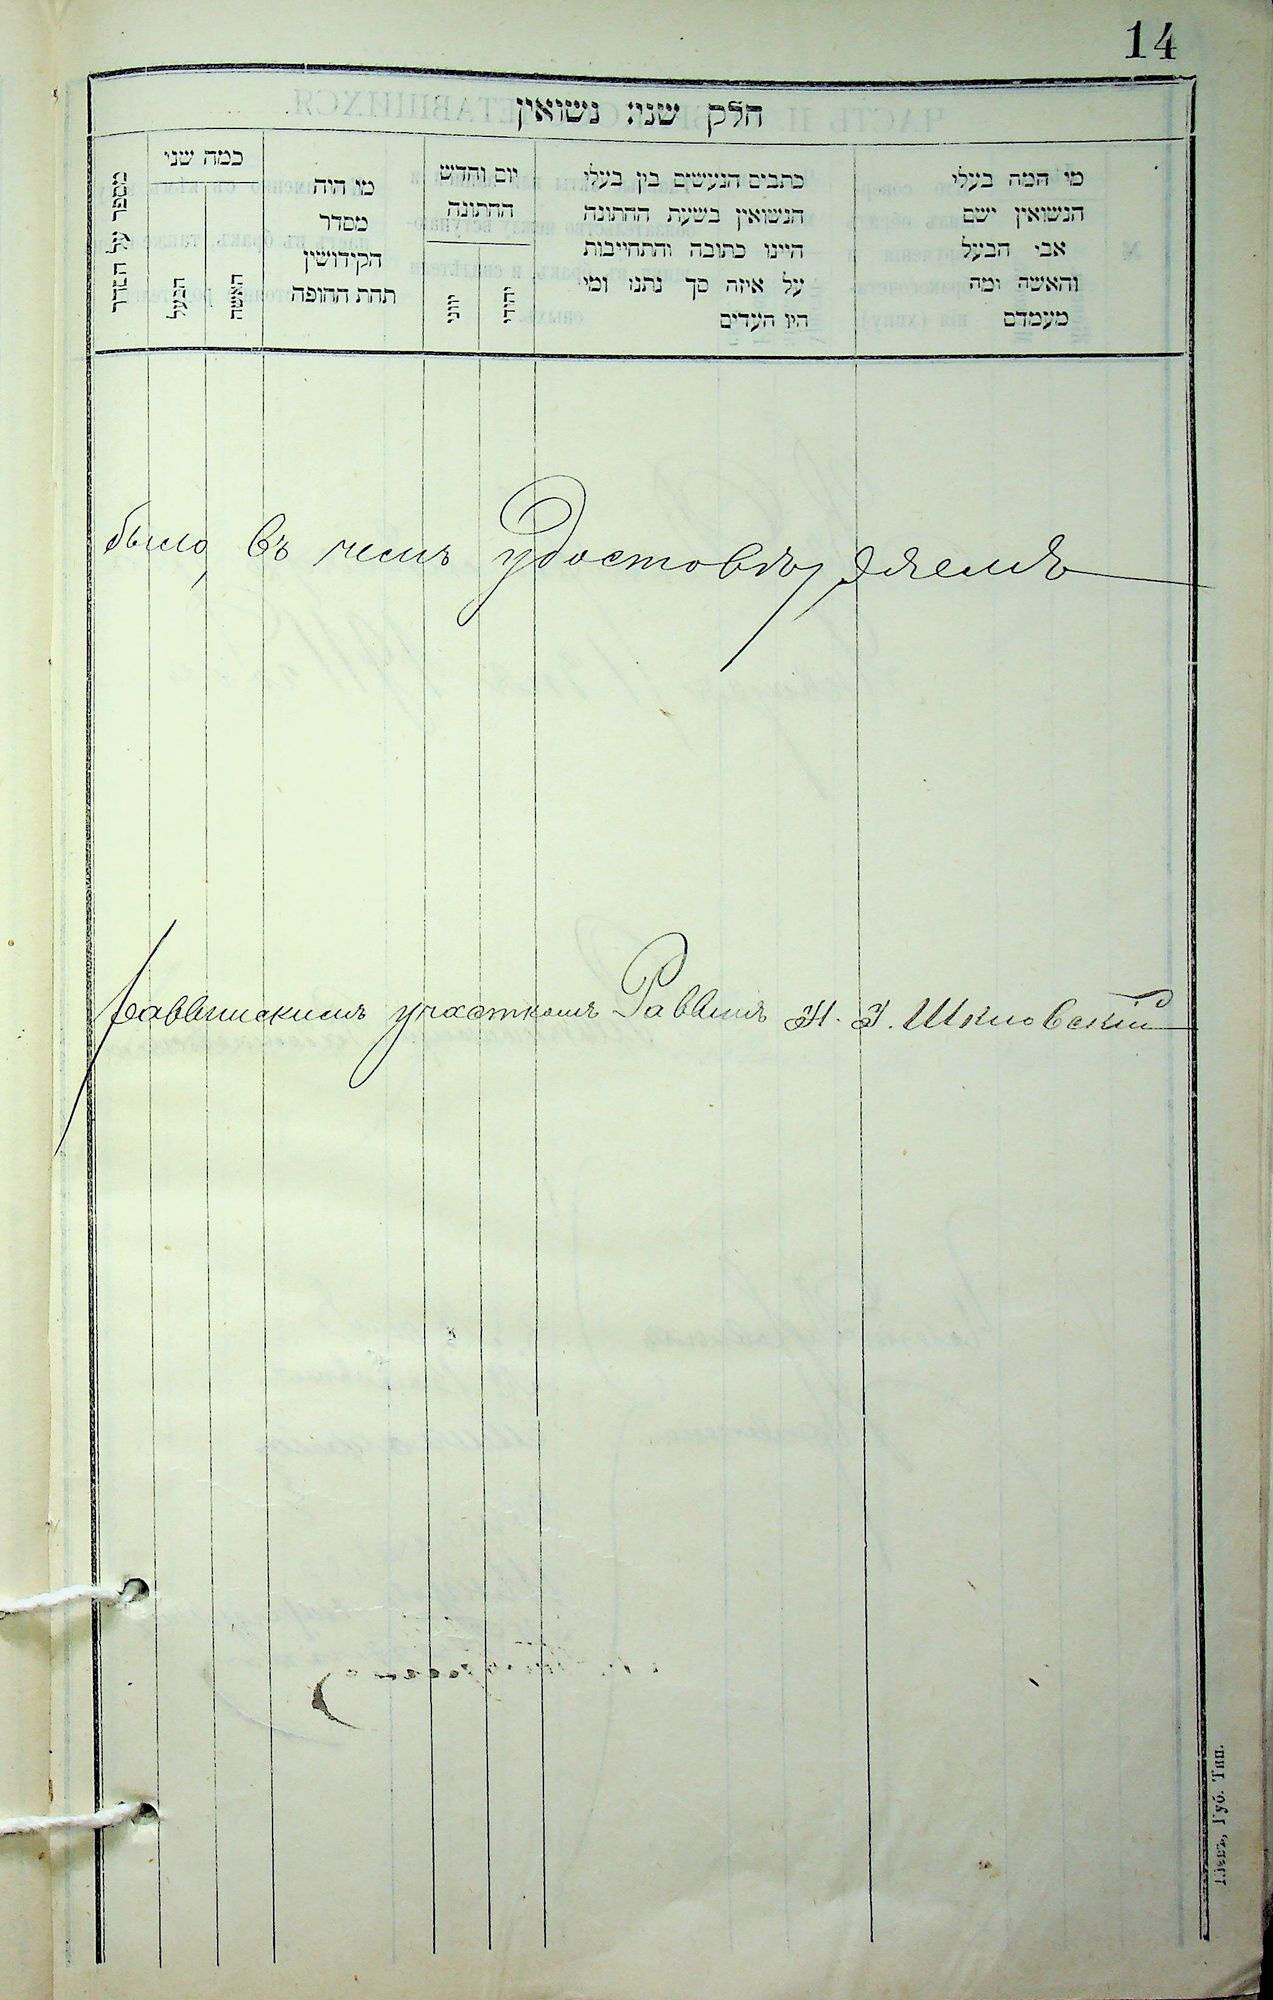 14
חלק שני: נשואין
מי המה בעלי
הנשואין ושם
אבי הבעל
והאשה ומה
מעמדם
כתבים הנעשים בין בעלי
הנשואין בשעת החתונה
היינו כתובה והתחייבות
על איזה סך נתנו ומי
היו העדים
יום וחדש
החתונה
יהודי
יוני
מי היה
מסדר
הקידושין
תחת החופה
כמה שני
האשה
הבעל
מספר על הסדר
было, въ чемъ удостовѣряемъ
Раввинскимъ участкомъ Раввинъ Шкловскій
Кіевъ, Губ. Тип.